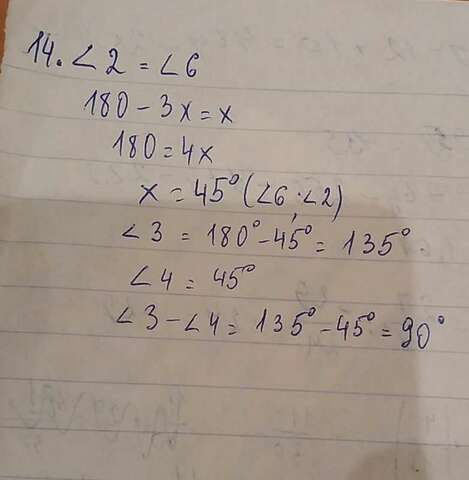 14. ∠2 = ∠6
180 - 3x = x
180 = 4x
x = 45° (∠6, ∠2)
∠3 = 180° - 45° = 135°
∠4 = 45°
∠3 - ∠4 = 135° - 45° = 90°